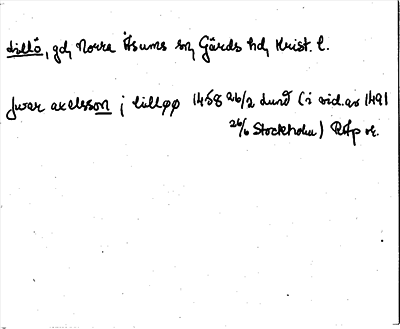 Lillö, gd, Norra Åsums sn, Gärds hd, Krist. l.
Jwer axelsson j lilløø 1458 26/2 Lund (i vid. av 1491
26/6 Stockholm) RAp or.